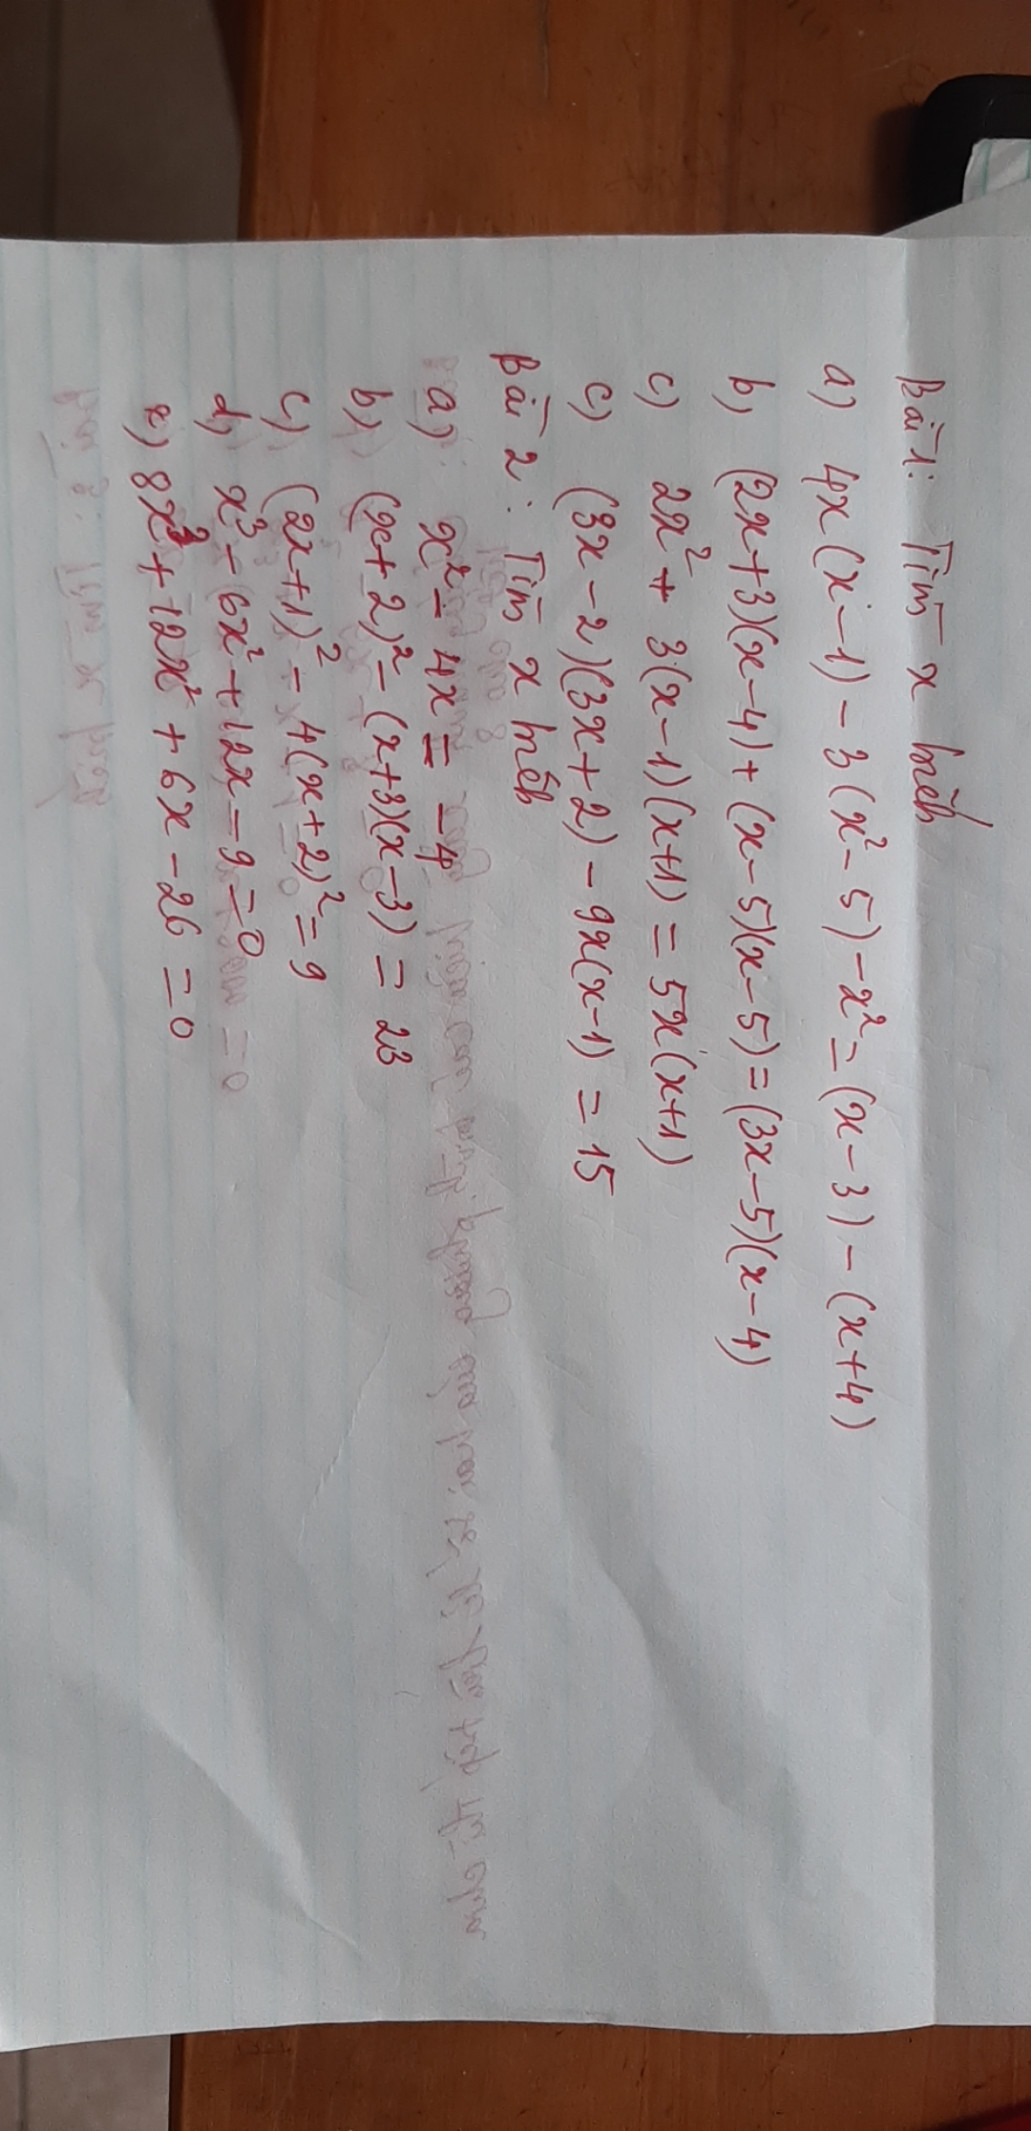 Bài 1: Tìm x biết
a) 4x(x-1) - 3(x² - 5) - x² = (x-3) - (x+4)
b) (2x+3)(x-4) + (x-5)(x-5) = (3x-5)(x-4)
c) 2x² + 3(x-1)(x+1) = 5x(x+1)
c) (3x-2)(3x+2) - 9x(x-1) = 15
Bài 2: Tìm x biết
a) x² - 4x = -4
b) (x+2)² - (x+3)(x-3) = 23
c) (2x+1)² - 4(x+2)² = 9
d) x³ - 6x² + 12x - 9 = 0
e) 8x³ + 12x² + 6x - 26 = 0